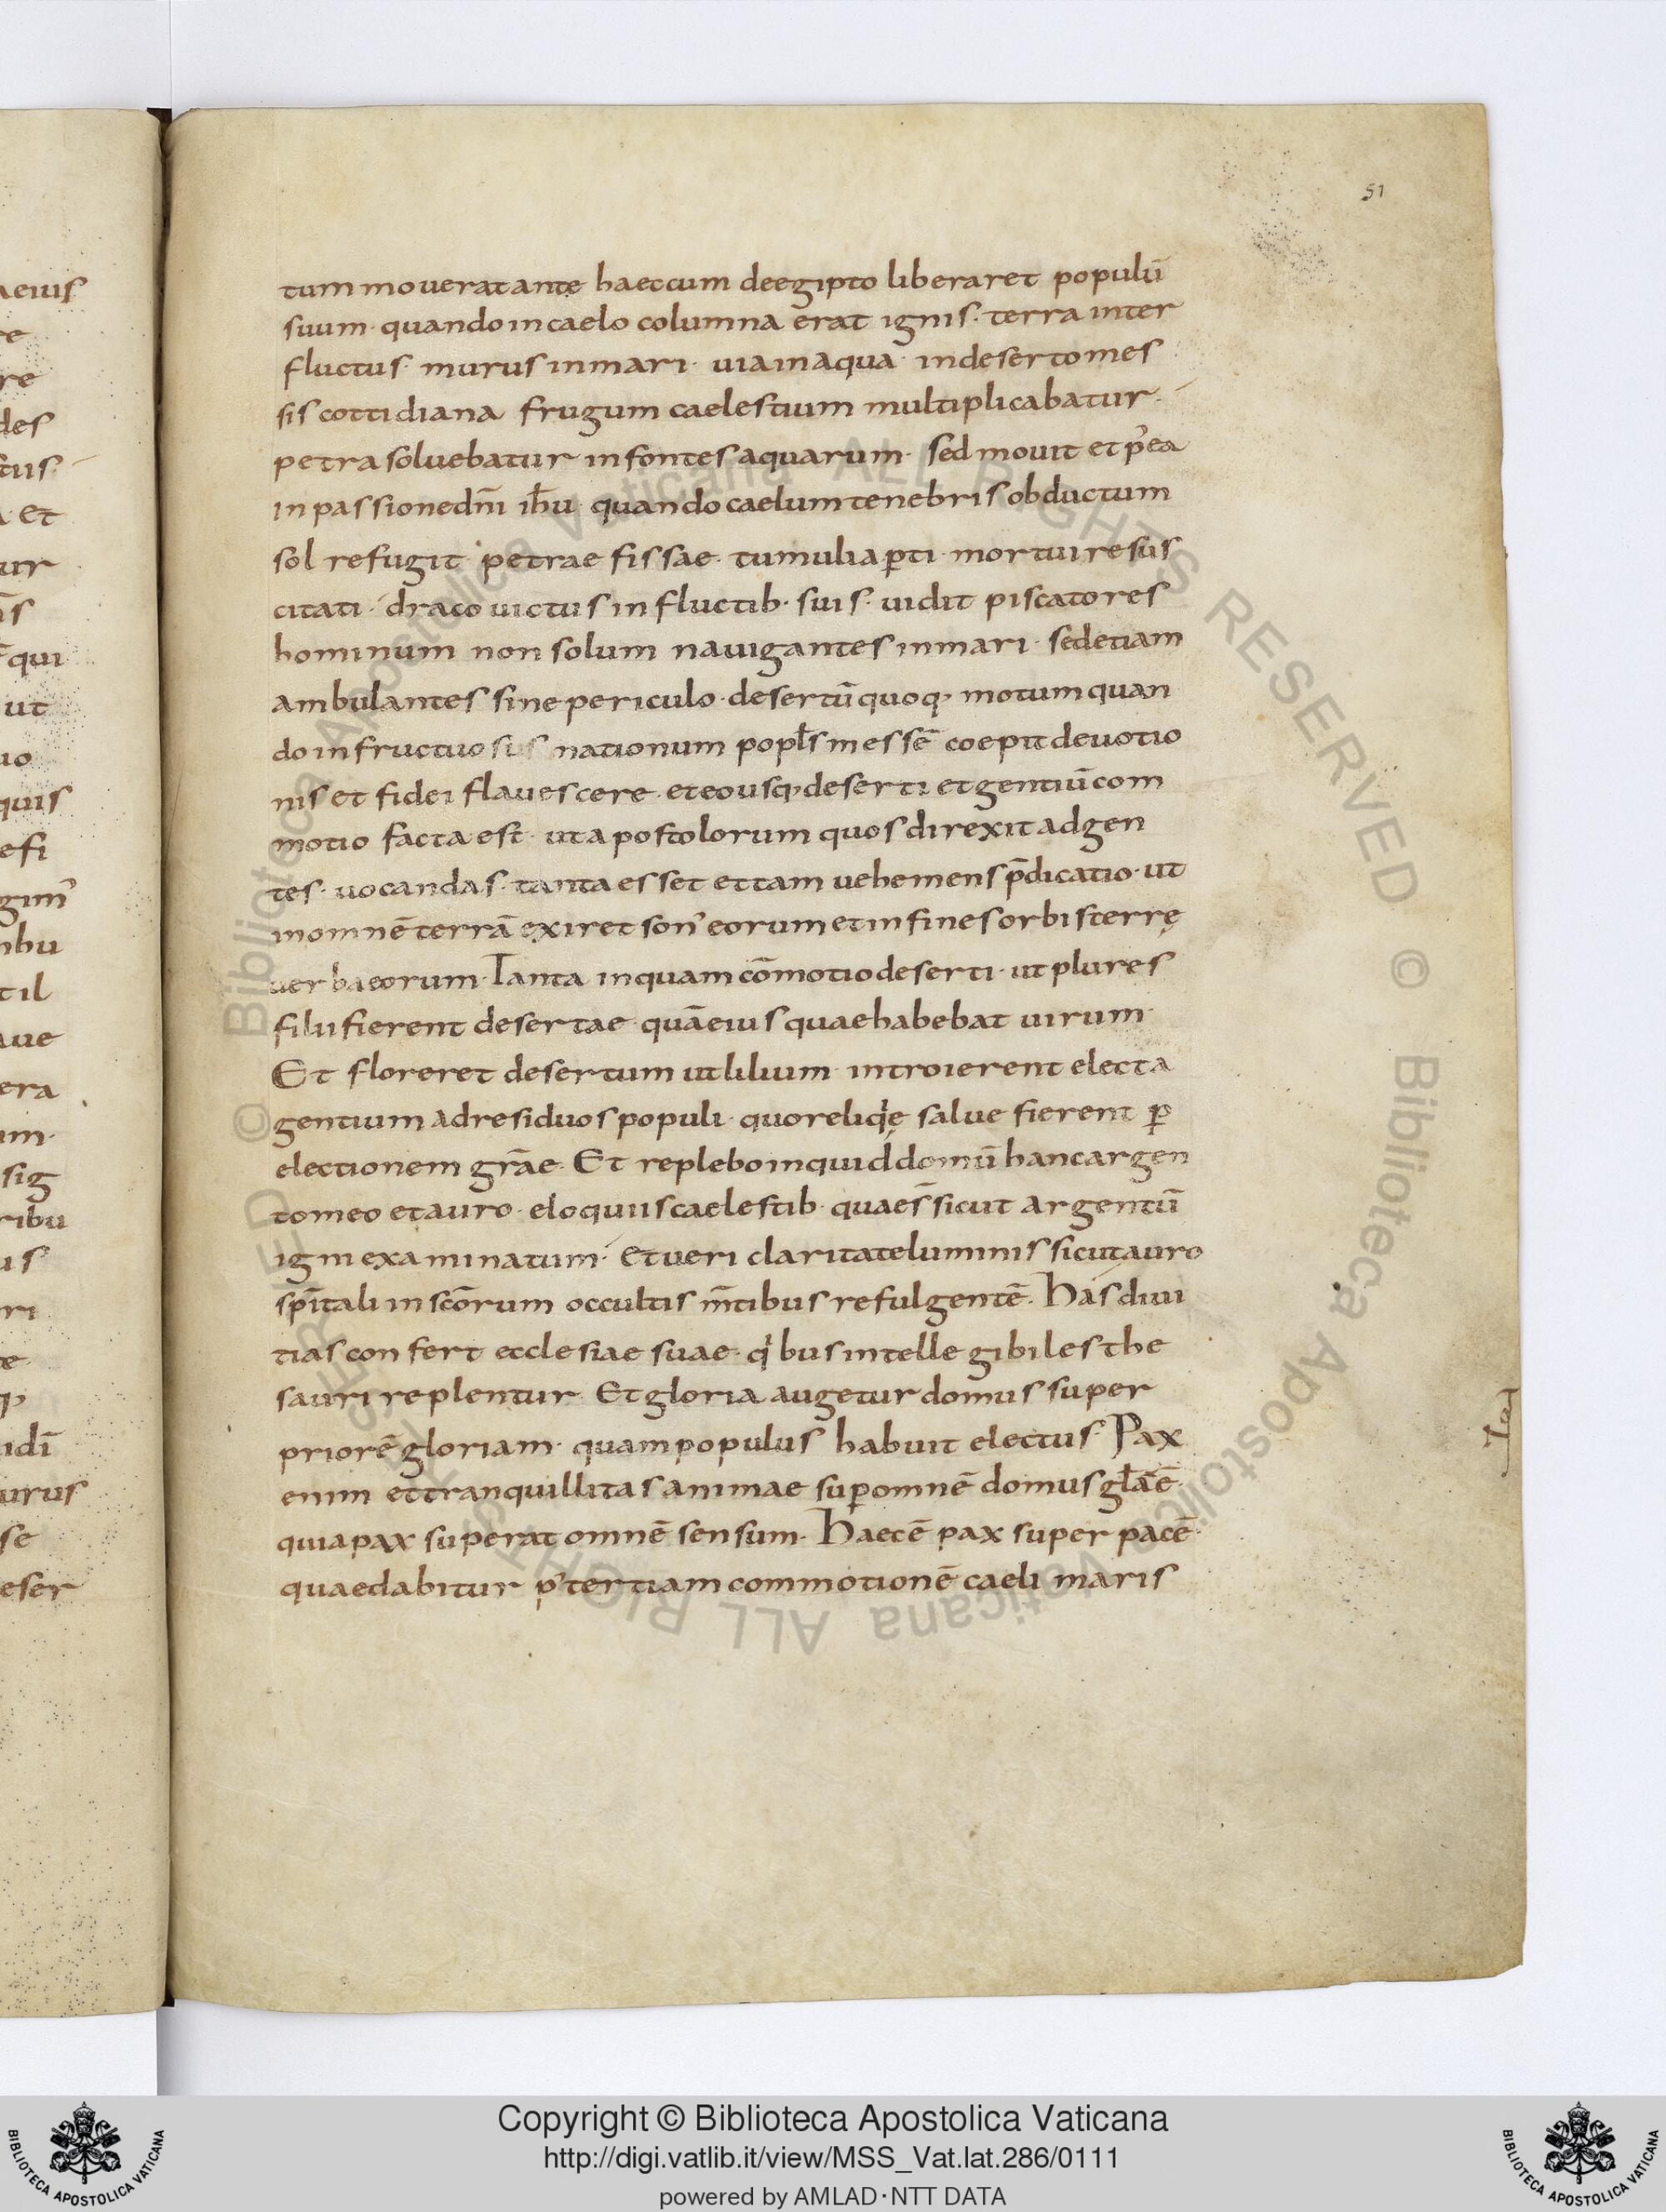 51
tum moverat ante haec cum de egipto liberaret populū
suum· quando in caelo columna erat ignis· terra inter
fluctus· murus in mari· uia in aqua· in deserto mes
sis cottidiana frugum caelestium multiplicabatur·
petra soluebatur in fontes aquarum· sed mouit et p̓ea
in passione dn̄i ih̄u quando caelum tenebris obductum
sol refugit petrae fissae· tumuli ap̱ti· mortui resus
citati· draco uictus in fluctib· suis· uidit piscatores
hominum non solum nauigantes in mari· sed etiam
ambulantes sine periculo· desertū quoq; motum quan
do infructuosus nationum popl̄s messē coepit deuotio
nis et fidei flauescere· et eousq; deserti et gentiū com
motio facta est· ut apostolorum quos direxit ad gen
tes· uocandas· tanta esset et tam uehemens p̄dicatio· ut
in omnē terrā exiret son̓ eorum et in fines orbis terrę
uerba eorum· Tanta inquam cōmotio deserti· ut plures
filii fierent desertae quā eius quae habebat uirum·
Et floreret desertum ut lilium introierent electa
gentium ad residuos populi· quo reliqię salue fierent p̱
electionem gr̄ae· Et replebo inquid domū hanc argen
to meo et auro· eloquiis caelestib· quae s̄ sicut argentū
igni examinatum· et ueri claritate luminis sicut auro
sp̄itali in sc̄orum occultis m̄tibus refulgentē· Has diui
tias confert ecclesiae suae· qibus intellegibiles the
sauri replentur· Et gloria augetur domus super
priorē gloriam· quam populus habuit electus· Pax
enim et tranquillitas animae sup̱ omnē domus gl̄a ē·
quia pax superat omnē sensum· Haec ē pax super pacē·
quae dabitur p̓ tertiam commotionē caeli maris
© Biblioteca Apostolica Vaticana ALL RIGHTS RESERVED © Biblioteca Apostolica Vaticana ALL RIGHTS RESERVED
Copyright © Biblioteca Apostolica Vaticana
http://digi.vatlib.it/view/MSS_Vat.lat.286/0111
powered by AMLAD·NTT DATA
BIBLIOTECA APOSTOLICA VATICANA
BIBLIOTECA APOSTOLICA VATICANA